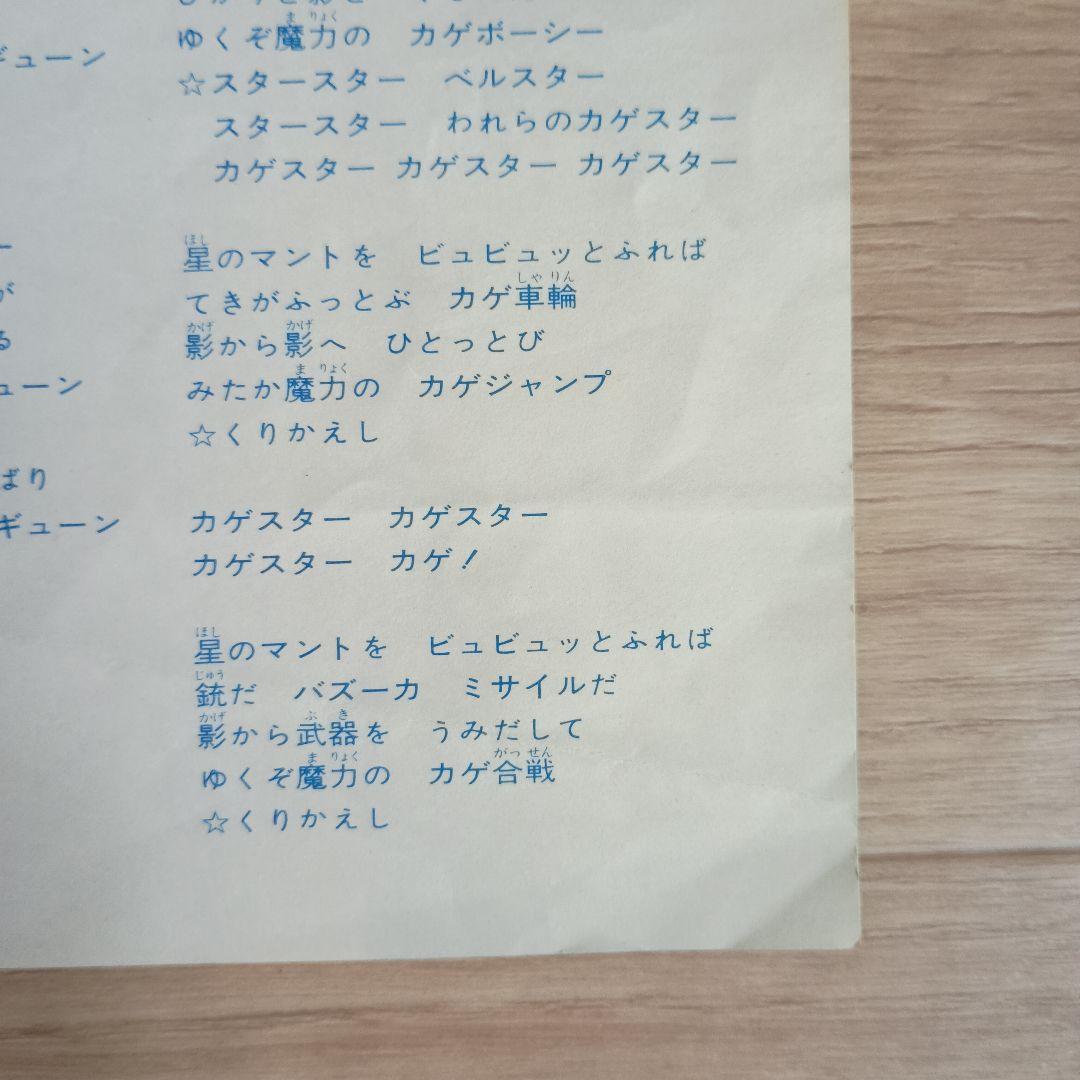 ギューン
ー
が
る
ューン
ばり
ギューン
ゆくぞ魔力の　カゲボーシー
☆スタースター　ベルスター
スタースター　われらのカゲスター
カゲスター カゲスター カゲスター
星のマントを　ビュビュッとふれば
てきがふっとぶ　カゲ車輪
影から影へ　ひとっとび
みたか魔力の　カゲジャンプ
☆くりかえし
カゲスター　カゲスター
カゲスター　カゲ！
星のマントを　ビュビュッとふれば
銃だ　バズーカ　ミサイルだ
影から武器を　うみだして
ゆくぞ魔力の　カゲ合戦
☆くりかえし